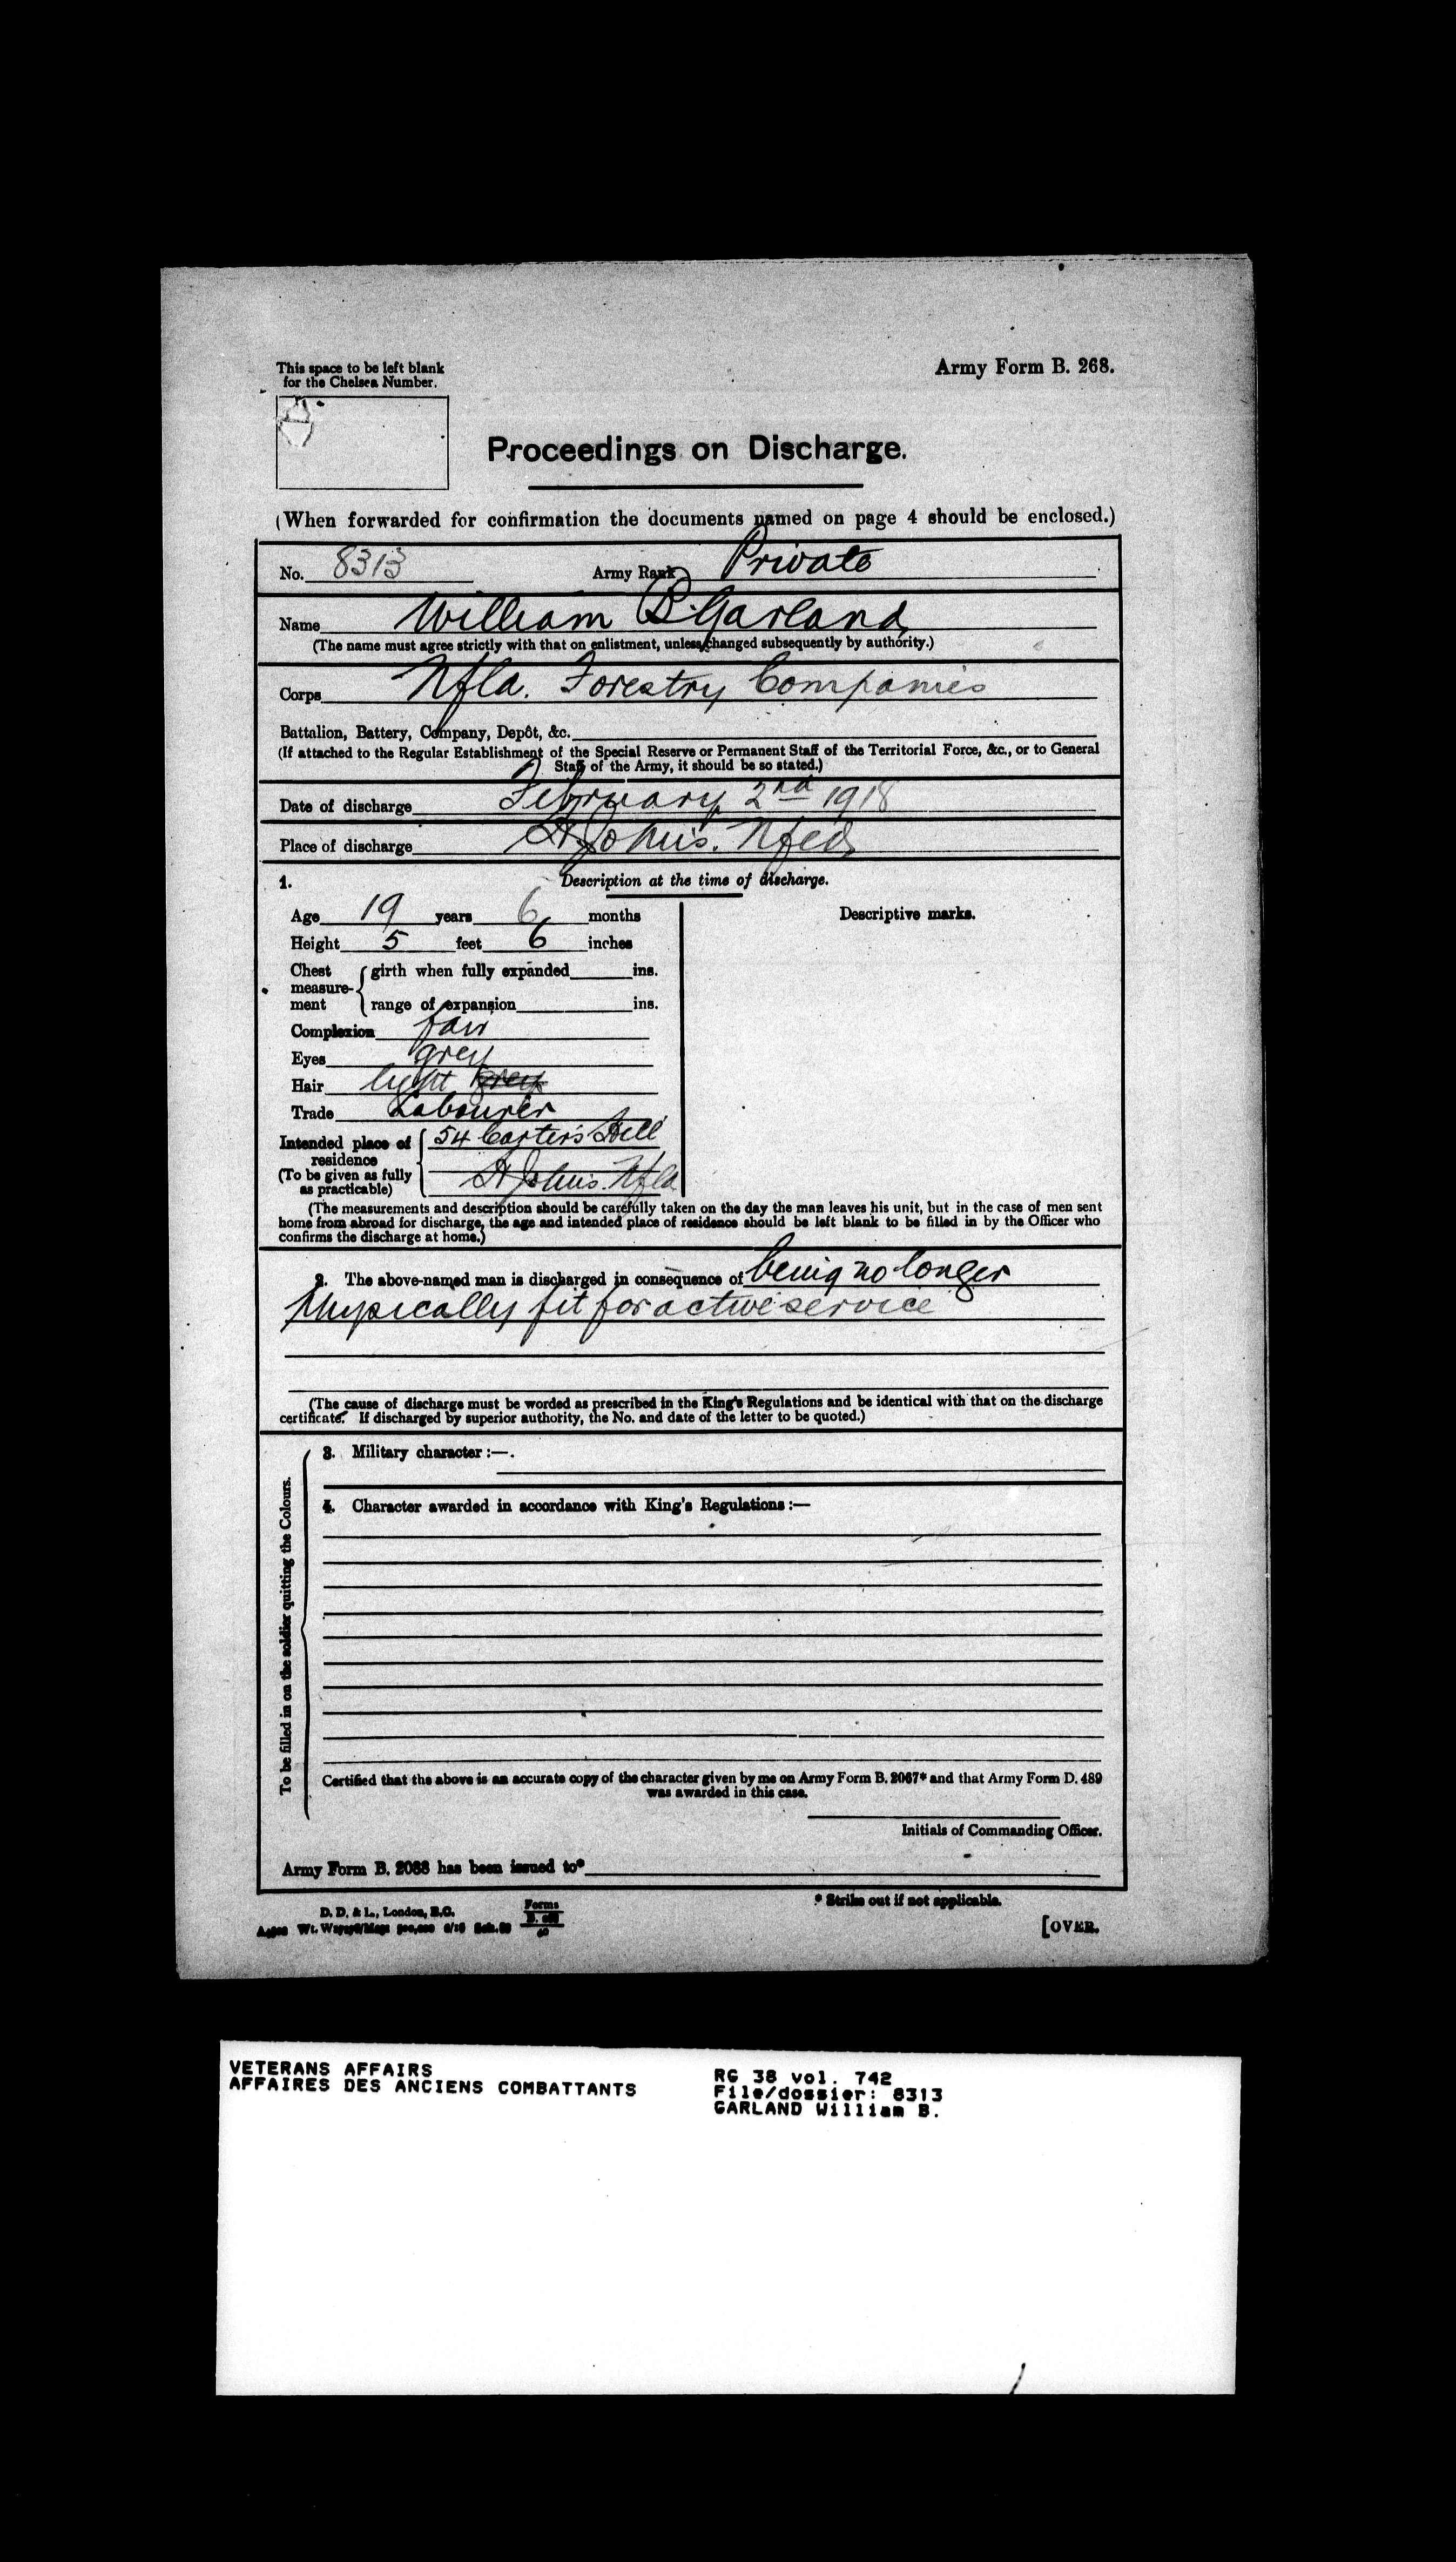 This space to be left blank
for the Chelsea Number.
Army Form B. 268.
Proceedings on Discharge.
(When forwarded for confirmation the documents named on page 4 should be enclosed.)
No. 8313 Army Rank Private
Name William B. Garland
(The name must agree strictly with that on enlistment, unless changed subsequently by authority.)
Corps Nfld. Forestry Companies
Battalion, Battery, Company, Depôt, &c.
(If attached to the Regular Establishment of the Special Reserve or Permanent Staff of the Territorial Force, &c., or to General
Staff of the Army, it should be so stated.)
Date of discharge February 2nd 1918
Place of discharge St John's. Nfld
1. Description at the time of discharge.
Age 19 years 6 months
Descriptive marks.
Height 5 feet 6 inches
Chest measurement girth when fully expanded ins.
range of expansion ins.
Complexion fair
Eyes grey
Hair light grey
Trade Labourer
Intended place of residence 54 Carter's Hill
(To be given as fully as practicable) St John's. Nfld
(The measurements and description should be carefully taken on the day the man leaves his unit, but in the case of men sent
home from abroad for discharge, the age and intended place of residence should be left blank to be filled in by the Officer who
confirms the discharge at home.)
2. The above-named man is discharged in consequence of being no longer
physically fit for active service
(The cause of discharge must be worded as prescribed in the King's Regulations and be identical with that on the discharge
certificate. If discharged by superior authority, the No. and date of the letter to be quoted.)
To be filled in on the soldier quitting the Colours.
3. Military character :—
4. Character awarded in accordance with King's Regulations :—
Certified that the above is an accurate copy of the character given by me on Army Form B. 2067* and that Army Form D. 489
was awarded in this case.
Initials of Commanding Officer.
Army Form B. 2088 has been issued to*
* Strike out if not applicable.
D. D. & L., London, E.C.
Forms
[OVER.
VETERANS AFFAIRS
AFFAIRES DES ANCIENS COMBATTANTS
RG 38 vol. 742
File/dossier: 8313
GARLAND William B.